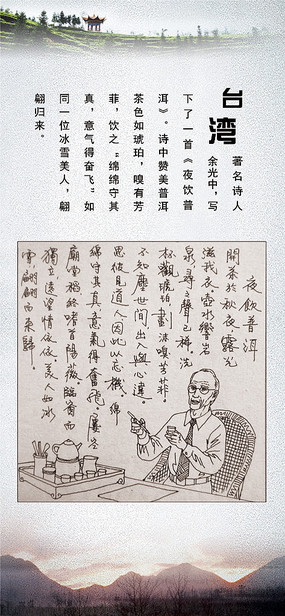 台湾
著名诗人
余光中，写
下了一首《夜饮普
洱》。诗中赞美普洱
茶色如琥珀，嗅有芳
菲，饮之“绵绵守其
真，意气得奋飞”如
同一位冰雪美人，翩
翩归来。
夜飲普洱
開茶於秋夜 露光
滋我衣。壺水響岩
泉 尋尋聲已稀。洗
杯觀琥珀 沫嗅芳菲。
不知塵世間 出與心違。
思彼見道人 因此以忘機。綿
綿守其真 意氣得奮飛。
廟堂 嗜首陽薇。臨
獨立遠望情依依。美人如冰
雪 翩翩西來歸。